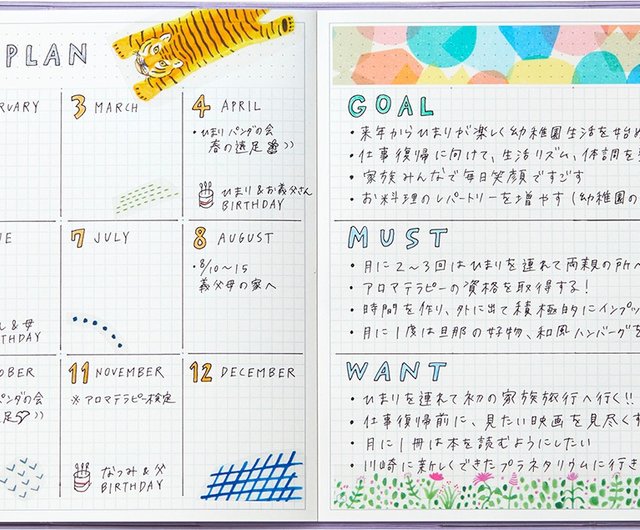 PLAN
RUARY
3 MARCH
4 APRIL
・ひまり パンダの会
春の遠足 ))
ひまり & お義父さん
BIRTHDAY
E
7 JULY
8 AUGUST
・8/10～15
義父母の家へ
& 母
HDAY
OBER
11 NOVEMBER
12 DECEMBER
パンダの会
遠足 ))
※ アロマテラピー検定
なつみ & 父
BIRTHDAY
GOAL
・来年からひまりが楽しく幼稚園生活を始め
・仕事復帰に向けて、生活リズム、体調を
・家族みんなで毎日笑顔ですごす
・お料理のレパートリーを増やす(幼稚園の
MUST
・月に2～3回はひまりを連れて両親の所へ
・アロマテラピーの資格を取得する!
・時間を作り、外に出て積極的にインプッ
・月に1度は旦那の好物、和風ハンバーグを
WANT
・ひまりを連れて初の家族旅行へ行く!!
・仕事復帰前に、見たい映画を見尽くす
・月に1冊は本を読むようにしたい
・川崎に新しくできたプラネタリウムに行き